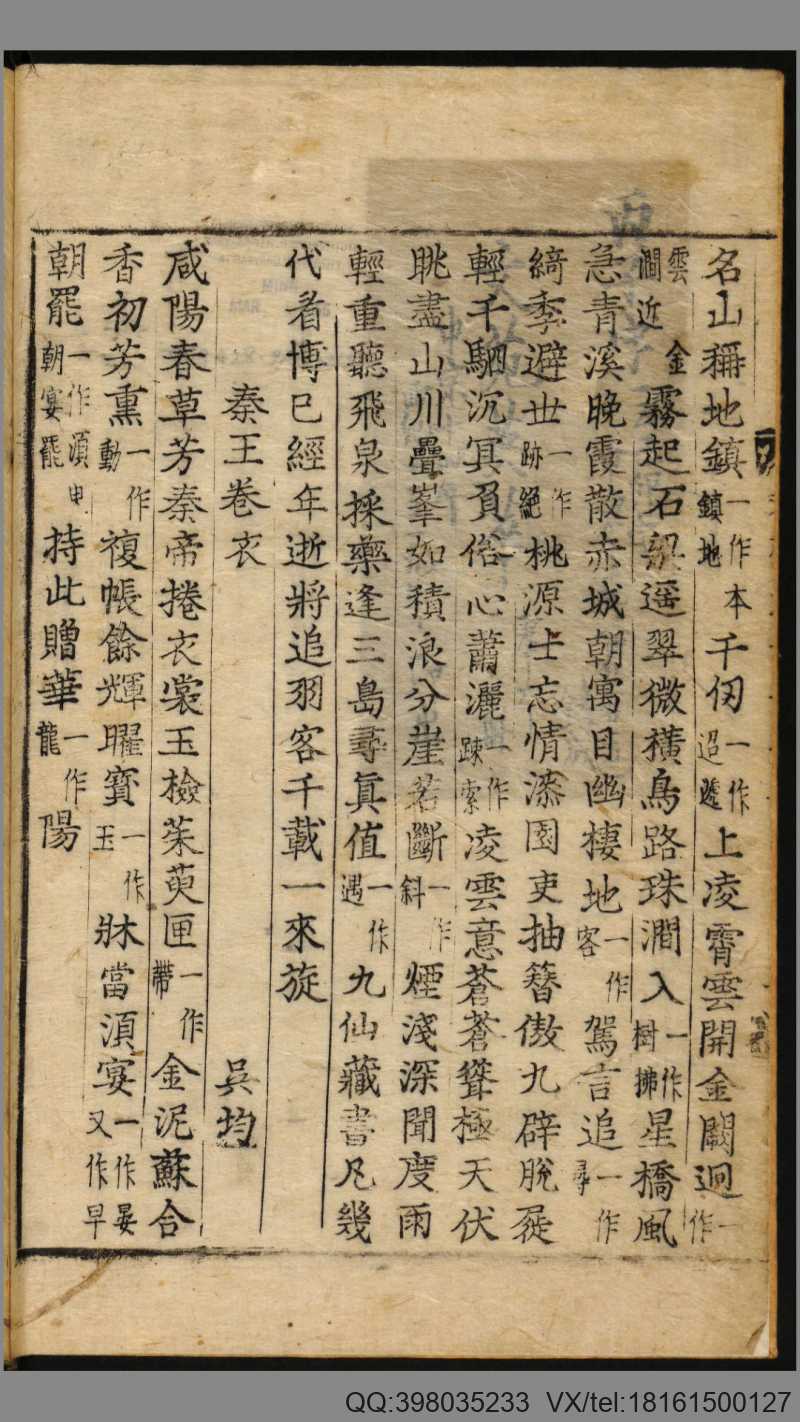 名山稱地鎮一作本鎮地千仞一作迢遞上凌霄雲開金闕迥一作
雲澗近金霧起石梁遥翠微橫鳥路珠澗入一作樹拂星橋風
急青溪晚霞散赤城朝寓目幽棲地一作客駕言追一作尋
綺季避世一作跡絕桃源士忘情漆園吏抽簪傲九辟脫屣
輕千駟沉冥負俗心蕭灑一作踈索凌雲意蒼蒼聳極天伏
眺盡山川疊峯如積浪分崖若斷一作斜煙淺深聞度雨
輕重聽飛泉採藥逢三島尋真值一作遇九仙藏書凡幾
代看博已經年逝將追羽客千載一來旋
秦王卷衣
吳均
咸陽春草芳秦帝捲衣裳玉檢茱萸匣一作帶金泥蘇合
香初芳熏一作動複帳餘輝曜寳一作玉牀當湏宴一作晏又作早
朝罷一作湏朝宴罷持此贈華一作龍陽
QQ:398035233 VX/tel:18161500127